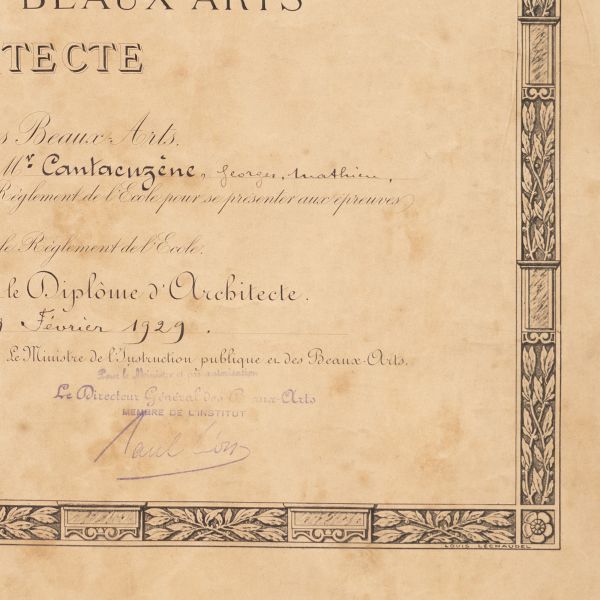 BEAUX ARTS
TECTE
Beaux-Arts.
Mr Cantacuzène, Georges, Mathieu,
Règlement de l'Ecole pour se présenter aux épreuves
le Règlement de l'Ecole.
le Diplôme d'Architecte.
Février 1929.
Le Ministre de l'Instruction publique et des Beaux-Arts.
Pour le Ministre et par autorisation
Le Directeur Général des Beaux-Arts
MEMBRE DE L'INSTITUT
Paul Léon
LOUIS LECHAUDEL